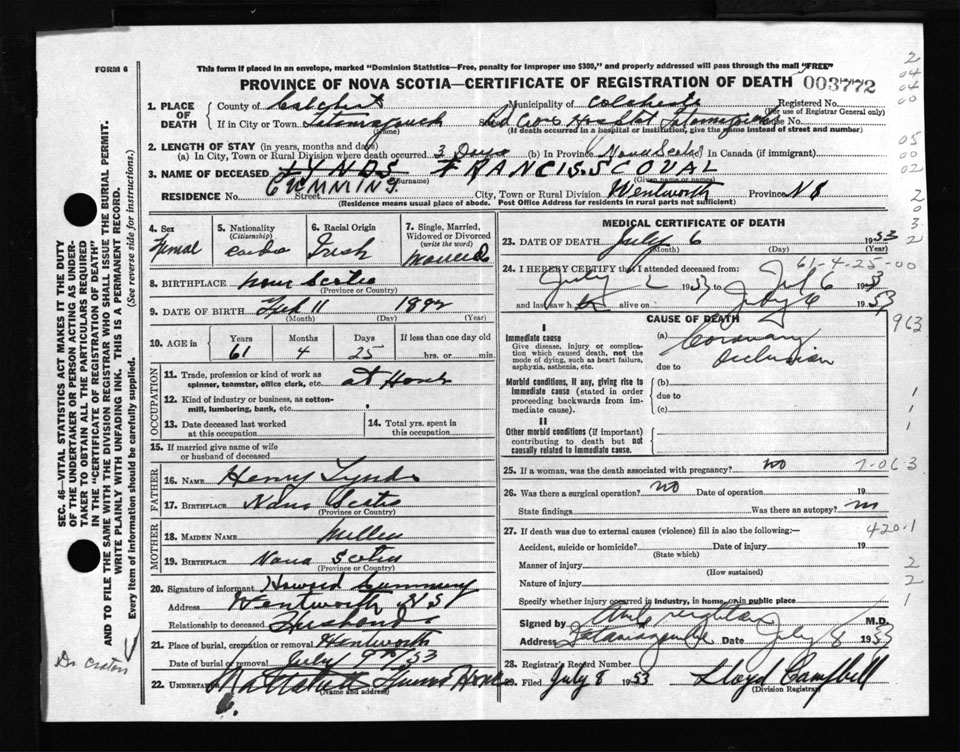 FORM 6
This form if placed in an envelope, marked "Dominion Statistics—Free, penalty for improper use $300," and properly addressed will pass through the mail "FREE"
PROVINCE OF NOVA SCOTIA—CERTIFICATE OF REGISTRATION OF DEATH 003772
1. PLACE OF DEATH
County of Colchester Municipality of Colchester Registered No.
(For use of Registrar General only)
If in City or Town Tatamagouche Red Cross Hospital Tatamagouche House No.
(Name) (If death occurred in a hospital or institution, give the name instead of street and number)
2. LENGTH OF STAY (in years, months and days)
(a) In City, Town or Rural Division where death occurred 3 Days (b) In Province Nova Scotia In Canada (if immigrant)
3. NAME OF DECEASED LYNDS FRANCIS SCOVAL
CUMMING (Surname) (Given name or names)
RESIDENCE No. Street City, Town or Rural Division Wentworth Province N S
(Residence means usual place of abode. Post Office Address for residents in rural parts not sufficient)
4. Sex
5. Nationality (Citizenship)
6. Racial Origin
Irish
7. Single, Married, Widowed or Divorced (write the word)
Married
8. BIRTHPLACE Nova Scotia
(Province or Country)
9. DATE OF BIRTH Feb 11 1892
(Month) (Day) (Year)
10. AGE in Years Months Days If less than one day old
61 4 25 hrs. or min.
OCCUPATION
11. Trade, profession or kind of work as spinner, teamster, office clerk, etc. at Home
12. Kind of industry or business, as cotton-mill, lumbering, bank, etc.
13. Date deceased last worked at this occupation
14. Total yrs. spent in this occupation
15. If married give name of wife or husband of deceased
FATHER
16. NAME Henry Lynds
17. BIRTHPLACE Nova Scotia
(Province or Country)
MOTHER
18. MAIDEN NAME
19. BIRTHPLACE Nova Scotia
(Province or Country)
20. Signature of informant Howard Cumming
Address Wentworth N S
Relationship to deceased Husband
21. Place of burial, cremation or removal Wentworth
Date of burial or removal July 9th 53
22. UNDERTAKER
(Name and address)
MEDICAL CERTIFICATE OF DEATH
23. DATE OF DEATH July 6 1953
(Month) (Day) (Year)
61-4-25-00
24. I HEREBY CERTIFY that I attended deceased from:
July 2 1953 to July 6 1953
and last saw h alive on July 6 1953
CAUSE OF DEATH
I
Immediate cause
Give disease, injury or complication which caused death, not the mode of dying, such as heart failure, asphyxia, asthenia, etc.
(a) Coronary occlusion
due to
Morbid conditions, if any, giving rise to immediate cause (stated in order proceeding backwards from immediate cause).
(b)
due to
(c)
II
Other morbid conditions (if important) contributing to death but not causally related to immediate cause.
25. If a woman, was the death associated with pregnancy? no
26. Was there a surgical operation? no Date of operation 19
State findings Was there an autopsy? no
27. If death was due to external causes (violence) fill in also the following:—
420.1
Accident, suicide or homicide? Date of injury 19
(State which)
Manner of injury
(How sustained)
Nature of injury
Specify whether injury occurred in industry, in home, or in public place
Signed by M.D.
Address Tatamagouche Date July 8 1953
28. Registrar's Record Number
29. Filed July 8 1953 Lloyd Campbell
(Division Registrar)
SEC. 46—VITAL STATISTICS ACT MAKES IT THE DUTY
OF THE UNDERTAKER OR PERSON ACTING AS UNDER-
TAKER TO OBTAIN ALL THE PARTICULARS REQUIRED
IN THE "CERTIFICATE OF REGISTRATION OF DEATH"
AND TO FILE THE SAME WITH THE DIVISION REGISTRAR WHO SHALL ISSUE THE BURIAL PERMIT.
WRITE PLAINLY WITH UNFADING INK. THIS IS A PERMANENT RECORD.
Every item of information should be carefully supplied. (See reverse side for instructions.)